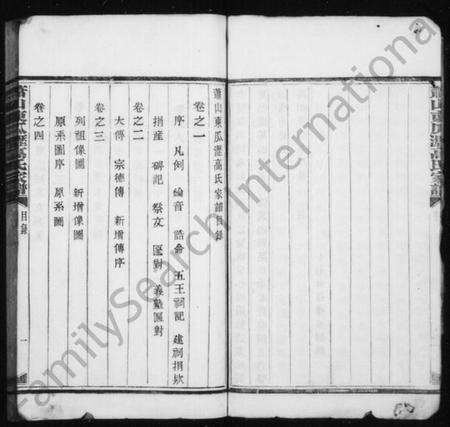 蕭山東瓜瀝高氏家譜目錄
卷之一
序 凡例 綸音 誥命 五王祠記 建祠捐欵
捐産 碑記 祭文 匾對 義塾匾對
卷之二
大傳 宗德傳 新增傳序
卷之三
列祖像圖 新增像圖
原系圖序 原系圖
卷之四
蕭山東瓜瀝高氏家譜
目錄
一
蕭山東瓜瀝高氏家譜
FamilySearch International